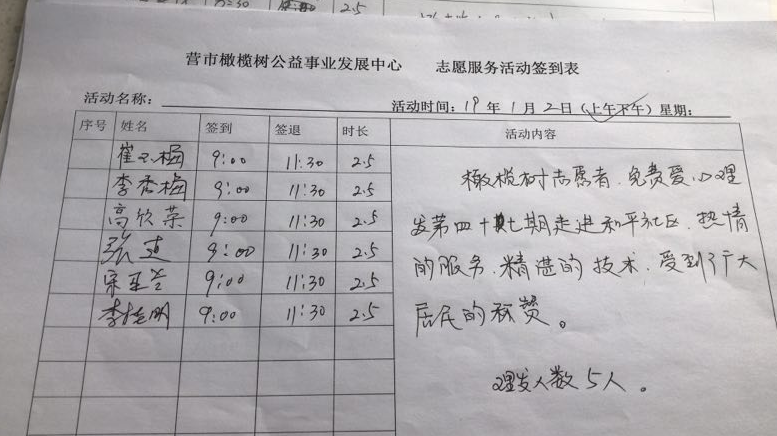 营市橄榄树公益事业发展中心 志愿服务活动签到表
活动名称: 活动时间: 19年1月2日(上午下午) 星期:
序号 姓名 签到 签退 时长 活动内容
崔玉梅 9:00 11:30 2.5
李秀梅 9:00 11:30 2.5
高欣荣 9:00 11:30 2.5
张 9:00 11:30 2.5
宋 9:00 11:30 2.5
李 明 9:00 11:30 2.5
橄榄树志愿者、免费爱心理
发第四十七期走进和平社区、热情
的服务、精湛的技术、受到了广大
居民的称赞。
理发人数5人。